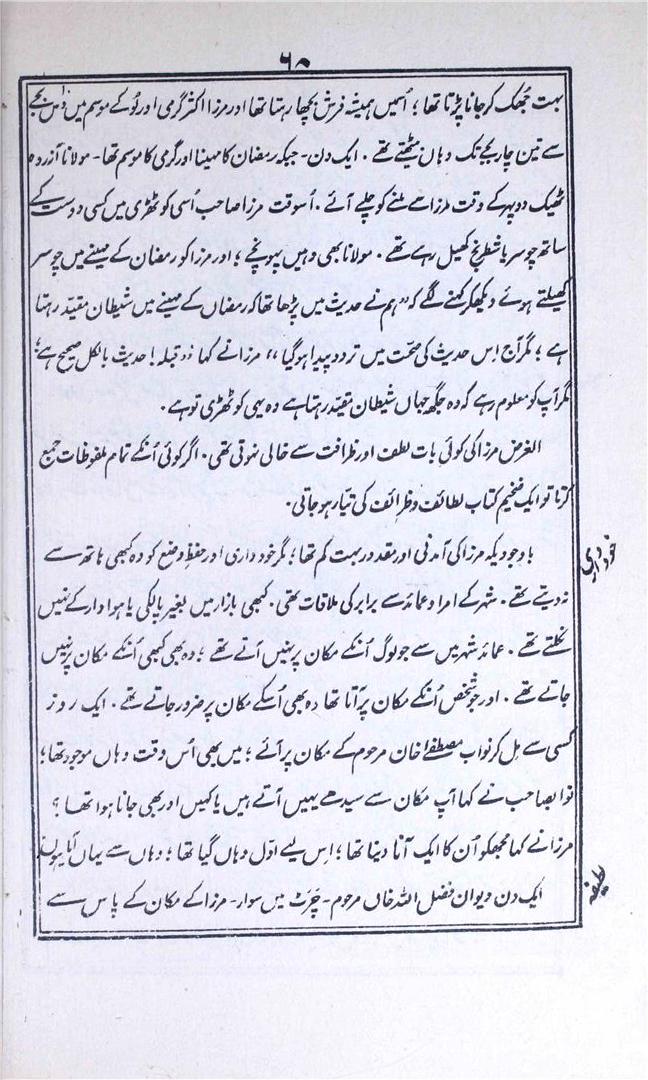 ۶۰
بہت جُھک کر جانا پڑتا تھا؛ اُسمیں ہمیشہ فرش بچھا رہتا تھا اور مرزا اکثر گرمی اور لُو کے موسم میں دس بجے
سے تین چار بجے تک وہاں بیٹھتے تھے۔ ایک دن۔ جبکہ رمضان کا مہینا اور گرمی کا موسم تھا۔ مولانا آزردہ
ٹھیک دوپہر کے وقت مرزا سے ملنے کو چلے آئے۔ اُسوقت مرزا صاحب اُسی کوٹھڑی میں کسی دوست کے
ساتھ چوسر یا شطرنج کھیل رہے تھے۔ مولانا بھی وہیں پہونچے؛ اور مرزا کو رمضان کے مہینے میں چوسر
کھیلتے ہوئے دیکھکر کہنے لگے کہ "ہم نے حدیث میں پڑھا تھا کہ رمضان کے مہینے میں شیطان مقیّد رہتا
ہے؛ مگر آج اِس حدیث کی صحت میں تردد پیدا ہوگیا" مرزا نے کہا "قبلہ! حدیث بالکل صحیح ہے؛
مگر آپ کو معلوم رہے کہ وہ جگہ جہاں شیطان مقیّد رہتا ہے وہ یہی کوٹھڑی تو ہے۔
الغرض مرزا کی کوئی بات لطف اور ظرافت سے خالی نہوتی تھی۔ اگر کوئی اُنکے تمام ملفوظات جمع
کرتا تو ایک ضخیم کتاب لطائف و ظرائف کی تیار ہو جاتی۔
خودداری
باوجودیکہ مرزا کی آمدنی اور مقدور بہت کم تھا؛ مگر خودداری اور حفظِ وضع کو وہ کبھی ہاتھ سے
نہ دیتے تھے۔ شہر کے امرا و عمائد سے برابر کی ملاقات تھی۔ کبھی بازار میں بغیر پالکی یا ہوادار کے نہیں
نکلتے تھے۔ عمائدِ شہر میں سے جو لوگ اُنکے مکان پر نہیں آتے تھے؛ وہ بھی کبھی اُنکے مکان پر نہیں
جاتے تھے۔ اور جو شخص اُنکے مکان پر آتا تھا وہ بھی اُسکے مکان پر ضرور جاتے تھے۔ ایک روز
کسی سے مِل کر نواب مصطفےٰ خان مرحوم کے مکان پر آئے؛ میں بھی اُس وقت وہاں موجود تھا؛
نواب صاحب نے کہا آپ مکان سے سیدھے یہیں آتے ہیں یا کہیں اور بھی جانا ہوا تھا؟
مرزا نے کہا مجھکو اُن کا ایک آنا دینا تھا؛ اِس لیے اوّل وہاں گیا تھا؛ وہاں سے یہاں آیا ہوں۔
لطیفہ
ایک دن دیوان فضل اللہ خاں مرحوم۔ چَرَٹ میں سوار۔ مرزا کے مکان کے پاس سے